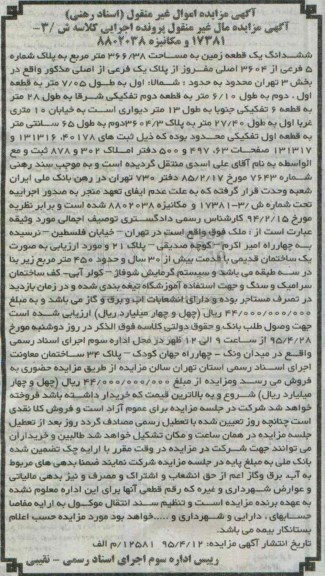 آگهی مزایده اموال غیر منقول (اسناد رهنی)
آگهی مزایده مال غیر منقول پرونده اجرایی کلاسه ش /۳-
۱۷۳۸۱ و مکانیزه ۸۸۰۲۰۳۸
ششدانگ یک قطعه زمین به مساحت ۳۶۶/۳۸ متر مربع به پلاک شماره
۲ فرعی از ۳۶۰۴ اصلی مفروز از پلاک یک فرعی از اصلی مذکور واقع در
بخش ۳ تهران محدود به حدود : شمالا: اول به طول ۷/۰۵ متر به قطعه
اول ، دوم به طول ۶/۱۰ متر به قطعه دوم تفکیکی شرقا به طول ۲۸ متر
به قطعه ۶ تفکیکی جنوبا به طول ۱۳ متر دیواری است به خیابان ۱۰ متری
غربا اول به طول ۲۷/۴۰ متر به پلاک ۳۶۰۴/۳ دوم به طول ۶۵ سانتی متر
به قطعه اول تفکیکی محدود بوده که ذیل ثبت های ۴۰۱۷۸، ۱۳۱۳۱۶ و
۱۳۱۳۱۷ صفحات ۶۳، ۴۹۷ و ۵۰۰ دفتر املاک ۳۰۲ و ۸۷۸ ثبت و مع
الواسطه به نام آقای علی اسدی منتقل گردیده است و به موجب سند رهنی
شماره ۷۶۴۳ مورخ ۸۵/۲/۱۷ دفتر ۷۳۰ تهران در رهن بانک ملی ایران
شعبه وحدت قرار گرفته که به علت عدم ایفای تعهد منجر به صدور اجراییه
تحت شماره ش /۳-۱۷۳۸۱ و مکانیزه ۸۸۰۲۰۳۸ شده است و برابر نظریه
مورخ ۹۴/۲/۱۵ کارشناس رسمی دادگستری توصیف اجمالی مورد وثیقه
عبارت است از : ملک فوق واقع است در تهران – خیابان فلسطین – نرسیده
به چهارراه امیر اکرم – کوچه صدیقی – پلاک ۲۱ و مورد ارزیابی به صورت
یک ساختمان قدیمی با قدمت بیش از ۳۰ سال و حدود ۴۵۰ متر مربع زیر بنا
در سه طبقه می باشد و سیستم گرمایش شوفاژ – کولر آبی- کف ساختمان
سرامیک و سنگ و جهت استفاده آموزشگاه تیغه بندی شده و در زمان بازدید
در تصرف مستاجر بوده و دارای انشعابات آب و برق و گاز می باشد و به مبلغ
۴۴/۰۰۰/۰۰۰/۰۰۰ ریال (چهل و چهار میلیارد ریال) ارزیابی شده است
جهت وصول طلب بانک و حقوق دولتی کلاسه فوق الذکر در روز دوشنبه مورخ
۹۵/۴/۲۸ از ساعت ۹ الی ۱۲ ظهر در محل اداره سوم اجرای اسناد رسمی
واقع در میدان ونک – چهارراه جهان کودک – پلاک ۳۴ ساختمان معاونت
اجرای اسناد رسمی استان تهران سالن مزایده از طریق مزایده حضوری به
فروش می رسد ومزایده از مبلغ ۴۴/۰۰۰/۰۰۰/۰۰۰ ریال (چهل و چهار
میلیارد ریال) شروع و به بالاترین قیمت که خریدار داشته باشد فروخته
خواهد شد شرکت در جلسه مزایده برای عموم آزاد است و فروش کلا نقدی
است چنانچه روز تعیین شده با تعطیل رسمی مصادف گردد روز بعد از تعطیل
جلسه مزایده در همان ساعت و مکان تشکیل خواهد شد طالبین و خریداران
می توانند جهت شرکت در مزایده در وقت مقرر با ارایه چک تضمین شده
بانک ملی به مبلغ پایه در جلسه مزایده شرکت نمایند ضمنا بدهی های مربوط
به آب، برق وگاز اعم از حق انشعاب و اشتراک و مصرف و نیز بدهی مالیاتی
و عوارض شهرداری و غیره که رقم قطعی آنها برای این اداره معلوم نشده
به عهده برنده مزایده است و تنظیم سند انتقال موکول به ارایه مفاصا
حسابهای ، دارایی و شهرداری و .....خواهد بود مورد مزایده حسب اعلام
بستانکار بیمه می باشد.
تاریخ انتشار آگهی مزایده: ۹۵/۴/۱۲ ۱۲۵۸۱/م الف
رییس اداره سوم اجرای اسناد رسمی – نقیبی